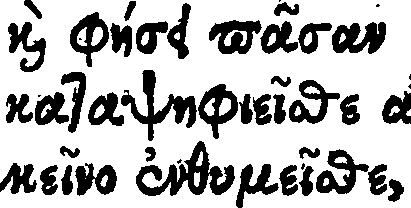 ϗ̀ φήσει ϖᾶσαν
καταψηφιεῖσθε ἀ
κεῖνο ἐνθυμεῖσθε,